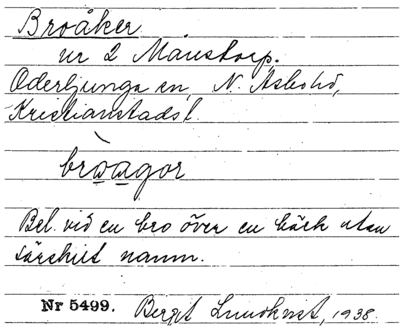 Broåker
nr 2 Månstorp.
Oderljunga sn, N. Åsbohd,
Kristianstads l.
brωαgor
Bel. vid en bro över en bäck utan
särskilt namn.
Nr 5499. Bergit Lundkvist, 1938.